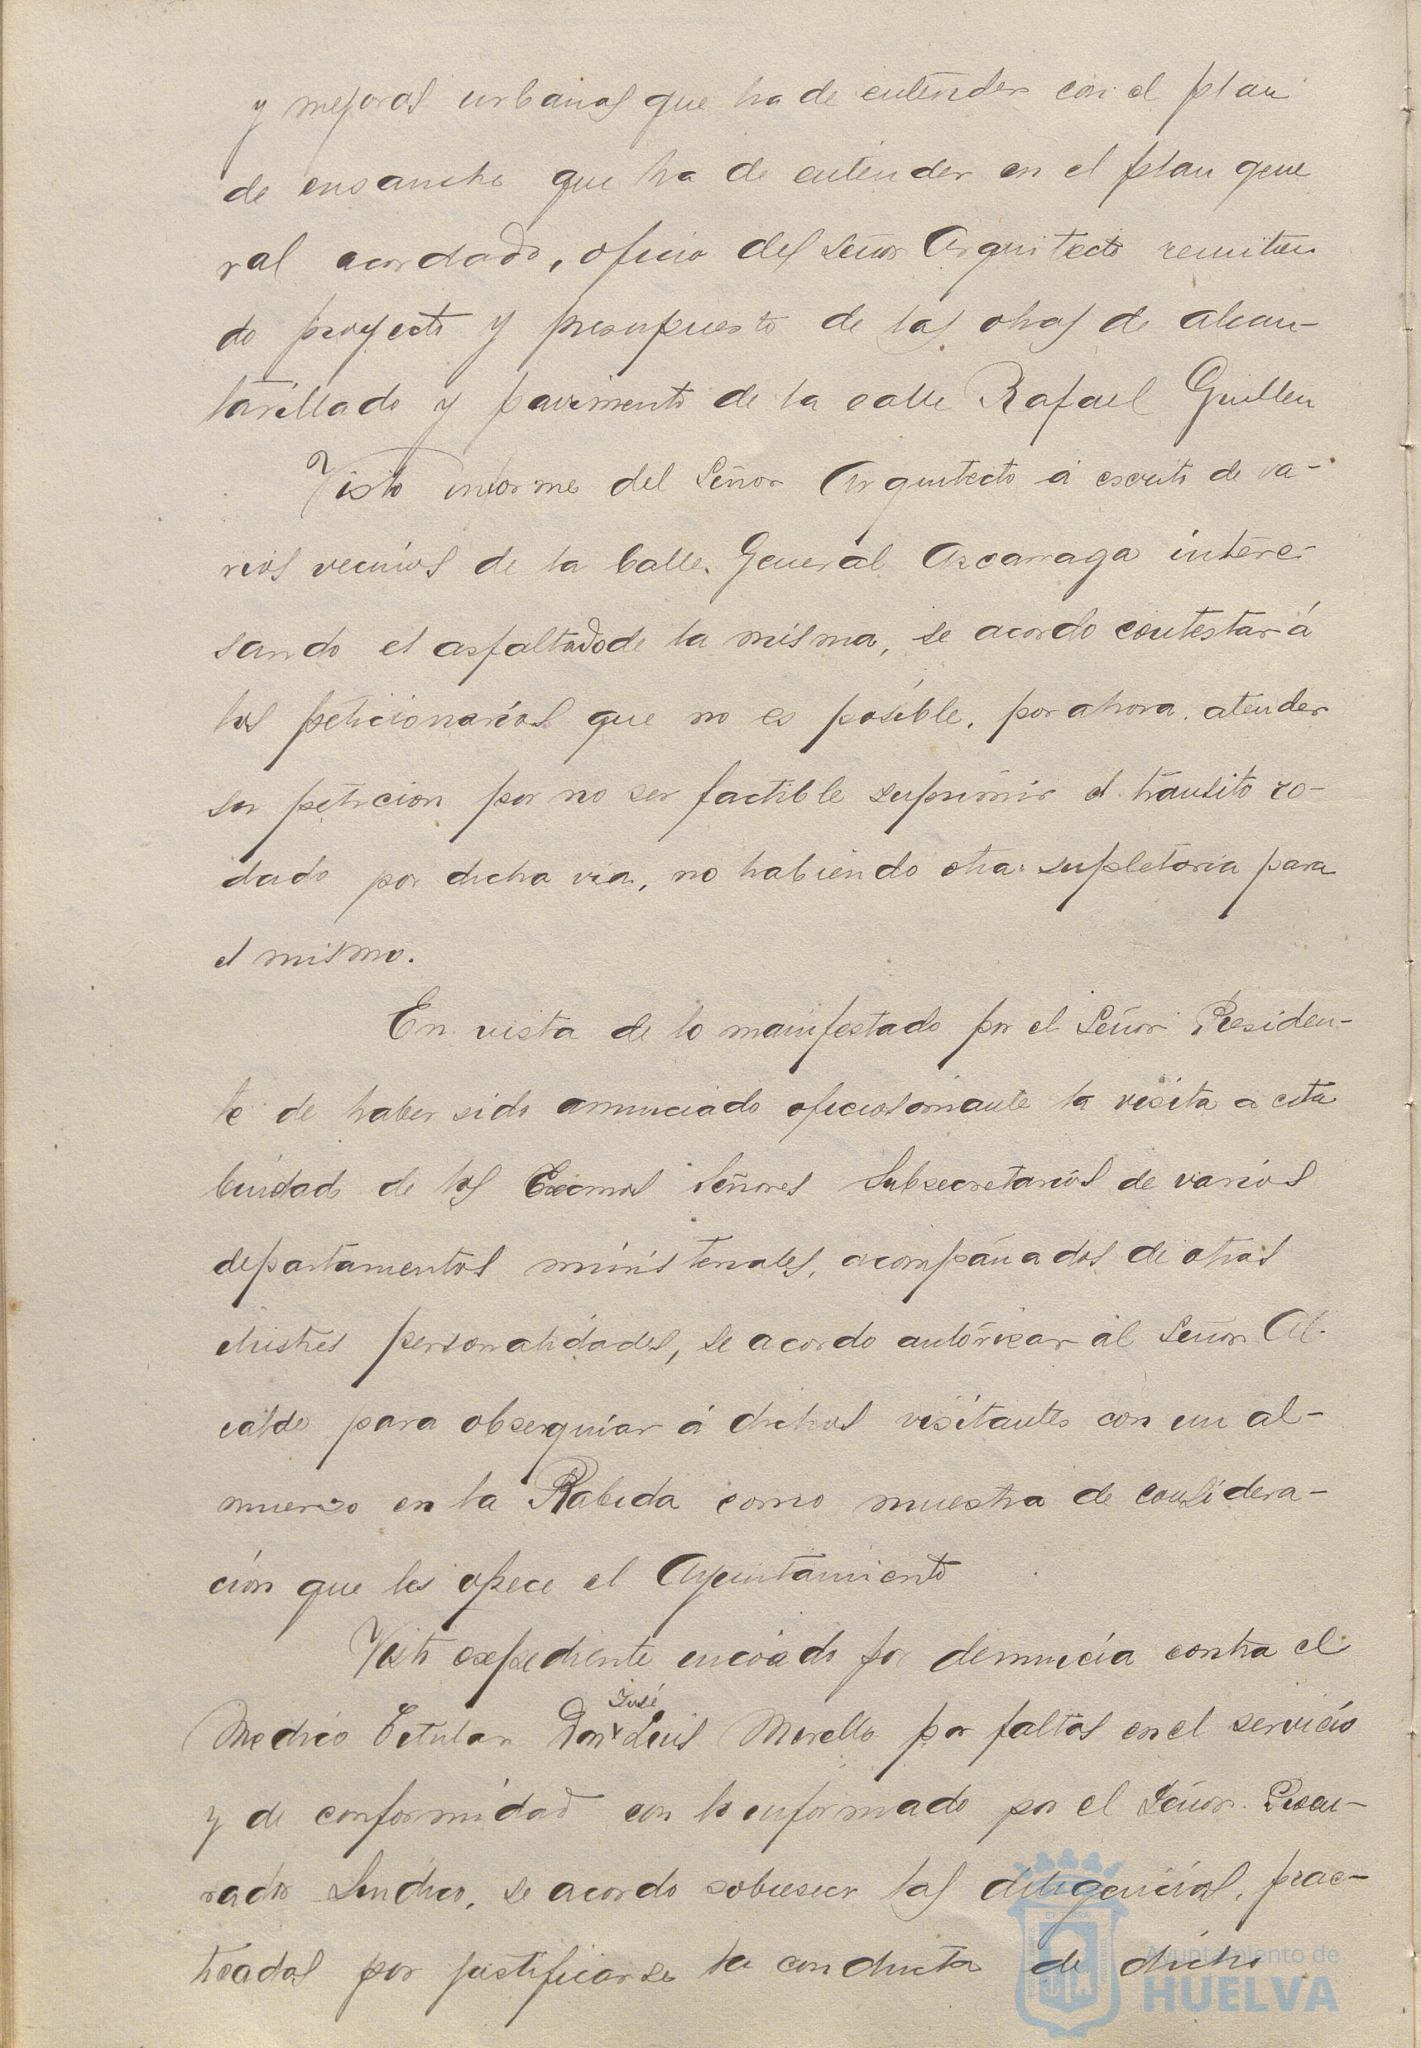 y mejoras urbanas que ha de entender con el plan
de ensanche que ha de entender en el plan gene
ral acordado, oficio del Señor Arquitecto remitien
do proyecto y presupuesto de las obras de alcan-
tarillado y pavimento de la calle Rafael Guillen
Visto informe del Señor Arquitecto á escrito de va-
rios vecinos de la Calle General Azcarraga intere-
sando el asfaltado de la misma, se acordo contestar á
los peticionarios que no es posible, por ahora, atender
su peticion por no ser factible suprimir el tránsito ro-
dado por dicha via, no habiendo otra supletoria para
el mismo.
En vista de lo manifestado por el Señor Presiden-
te de haber sido anunciado oficiosamante la visita a esta
Ciudad de los Excmos Señores Subsecretarios de varios
departamentos ministeriales, acompañados de otras
ilustres personalidades, se acordo autorizar al Señor Al-
calde para obsequiar á dichos visitantes con un al-
muerzo en la Rabida como muestra de considera-
ción que les ofrece el Ayuntamiento
Visto expediente incoado por denuncia contra el
Medico Titular Don José Luis Morello por faltas en el servicio
y de conformidad con lo informado por el Señor Procu-
rador Sindico, se acordo sobreseer las diligencias, prac-
ticadas por justificarse la conducta de dicho
Ayuntamiento de
HUELVA